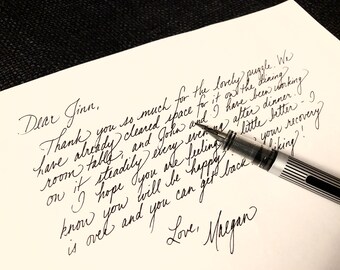 Dear Jinn,
Thank you so much for the lovely puzzle. We
have already cleared space for it on the dining
room table, and John and I have been working
on it steadily every evening after dinner.
I hope you are feeling a little better - I
know you will be happy your recovery
is over and you can get back
Love, Maegan